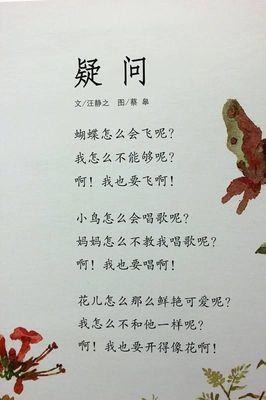 疑问
文/汪静之 图/蔡皋
蝴蝶怎么会飞呢？
我怎么不能够呢？
啊！我也要飞啊！
小鸟怎么会唱歌呢？
妈妈怎么不教我唱歌呢？
啊！我也要唱啊！
花儿怎么那么鲜艳可爱呢？
我怎么不和他一样呢？
啊！我也要开得像花啊！